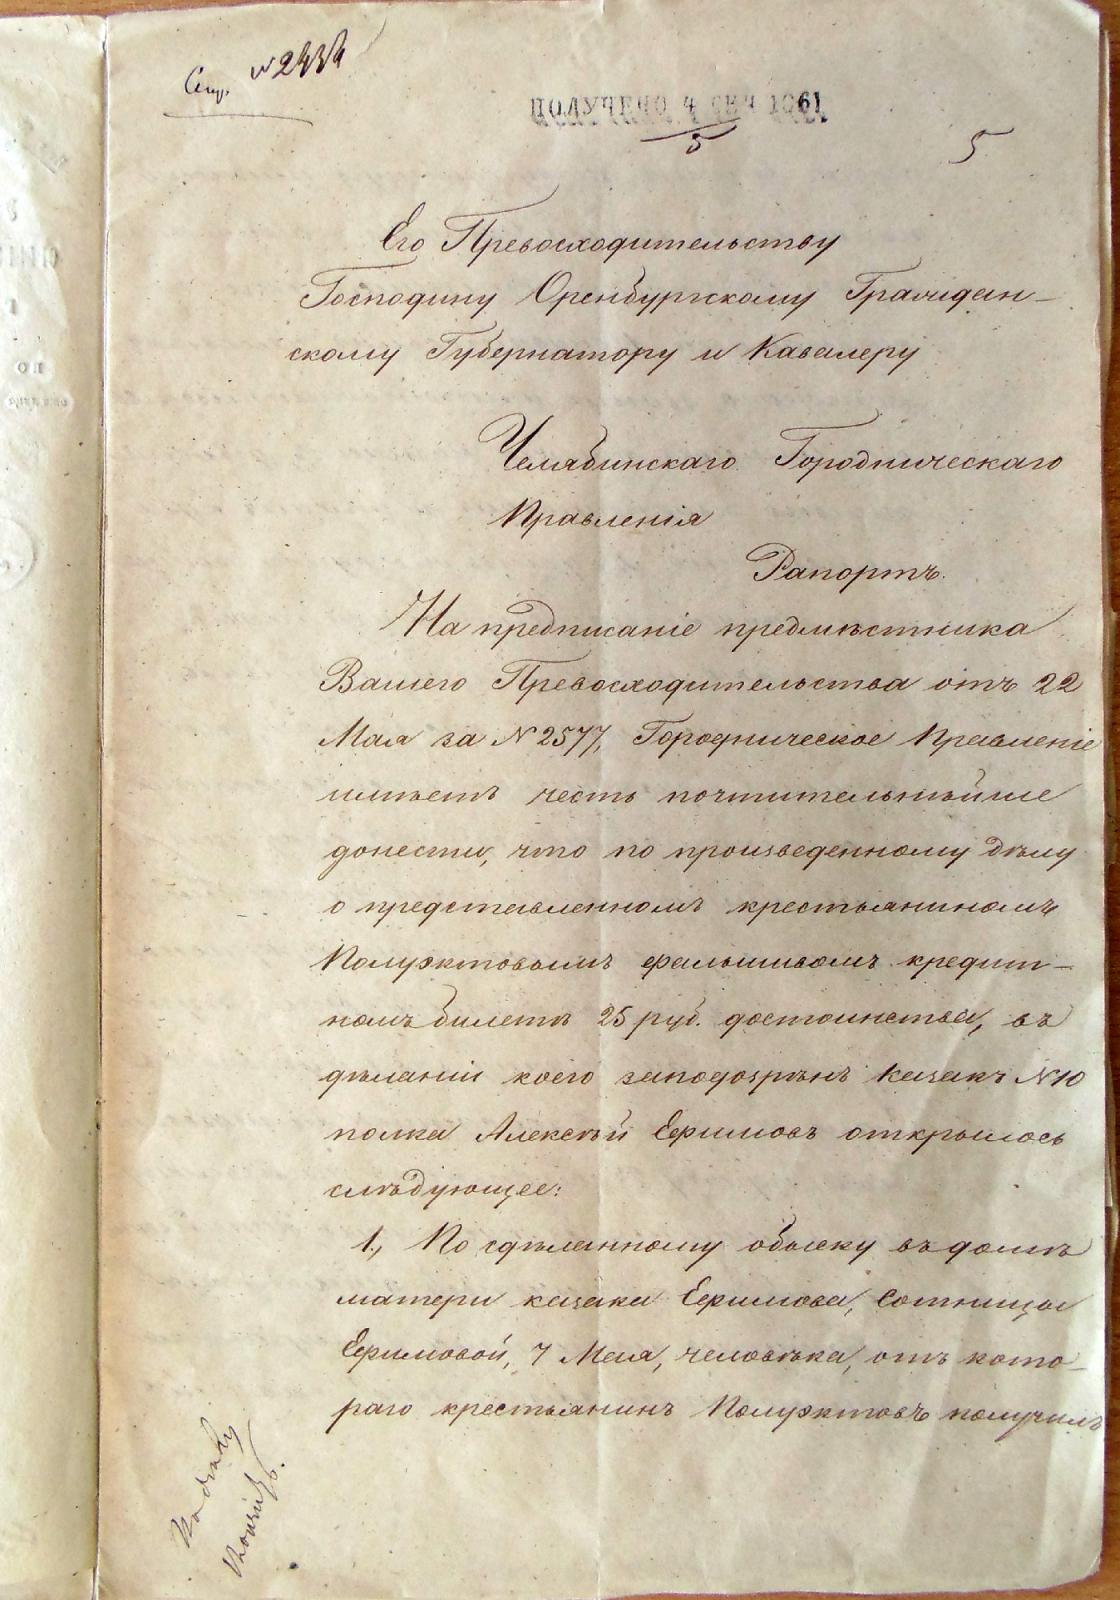 № 2434
ПОЛУЧЕНО 4 СЕН 1861
5
5
Его Превосходительству
Господину Оренбургскому Граждан-
скому Губернатору и Кавалеру
Челябинскаго Городническаго
Правленія
Рапортъ.
На предписаніе предмѣстника
Вашего Превосходительства отъ 22
Мая за № 2577, Городническое Правленіе
имѣетъ честь почтительнѣйше
донести, что по произведенному дѣлу
о представленномъ крестьяниномъ
Полуэктовымъ фальшивомъ кредит-
номъ билетѣ 25 руб. достоинства, въ
дѣланіи коего заподозрѣнъ казакъ № 10
полка Алексѣй Ефимовъ открылось
слѣдующее:
1., По сдѣланному обыску въ домѣ
матери казака Ефимова, Сотницы
Ефимовой, 7 Мая, человѣка, отъ кото-
раго крестьянинъ Полуэктовъ получилъ
Къ дѣлу